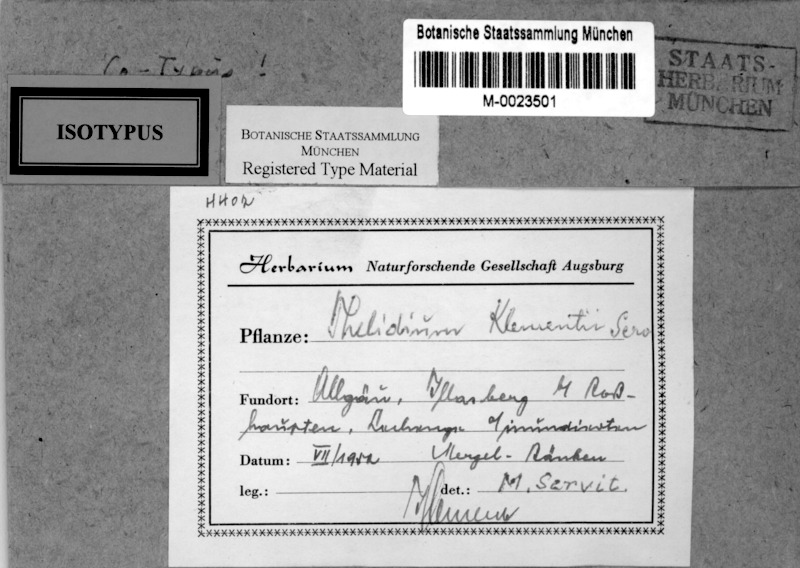 Co-Typus!
Botanische Staatssammlung München
M-0023501
STAATS-
HERBARIUM
MÜNCHEN
ISOTYPUS
BOTANISCHE STAATSSAMMLUNG
MÜNCHEN
Registered Type Material
Herbarium Naturforschende Gesellschaft Augsburg
Pflanze: Thelidium Klementii Serv
Fundort: Allgäu,
Datum: VII/1952 Mergel-Bänken
leg.: Klement det.: M. Servit.